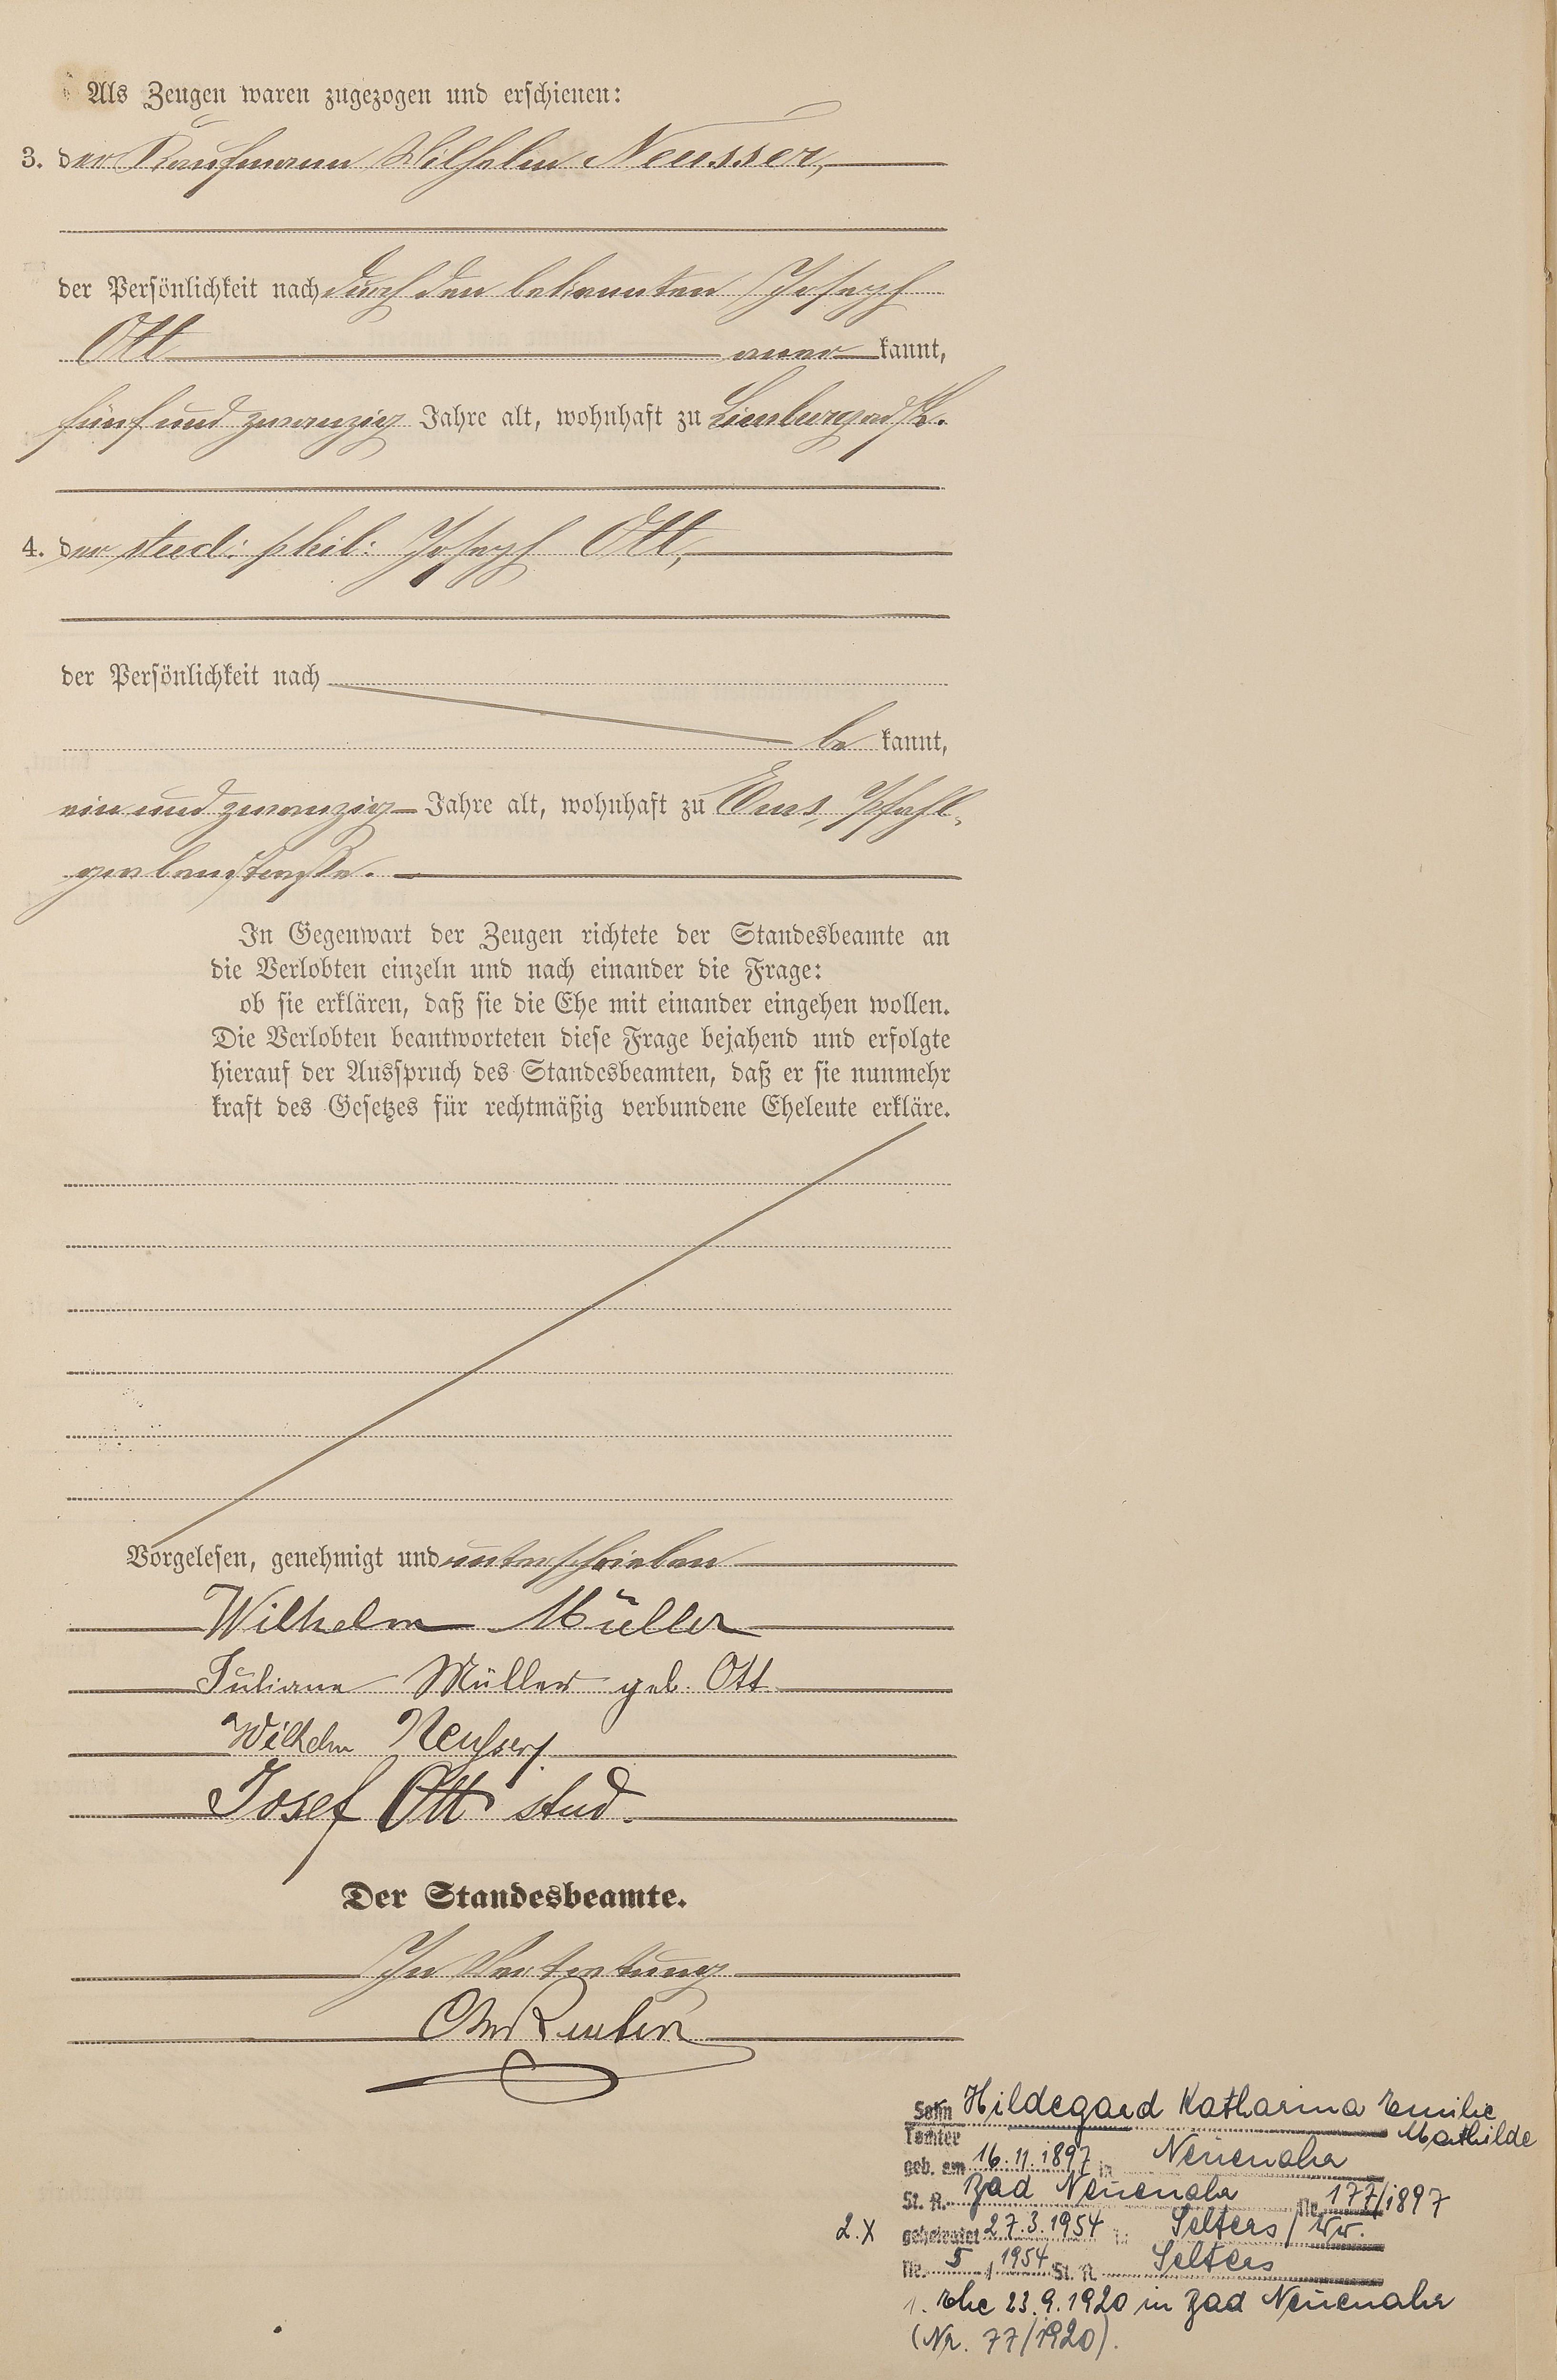 Als Zeugen waren zugezogen und erschienen:
3. der Kaufmann Wilhelm Neusser,
der Persönlichkeit nach durch den bekannten Joseph
Ott aner kannt,
fünf und zwanzig Jahre alt, wohnhaft zu Limburg a/d L.
4. der stud: phil: Joseph Ott,
der Persönlichkeit nach
be kannt,
ein und zwanzig Jahre alt, wohnhaft zu Ems, Pfahl-
grabenstraße.
In Gegenwart der Zeugen richtete der Standesbeamte an
die Verlobten einzeln und nach einander die Frage:
ob sie erklären, daß sie die Ehe mit einander eingehen wollen.
Die Verlobten beantworteten diese Frage bejahend und erfolgte
hierauf der Ausspruch des Standesbeamten, daß er sie nunmehr
kraft des Gesetzes für rechtmäßig verbundene Eheleute erkläre.
Vorgelesen, genehmigt und unterschrieben
Wilhelm Müller
Juliane Müller geb. Ott
Wilhelm Neusser
Josef Ott stud.
Der Standesbeamte.
In Vertretung
Sohn Hildegard Katharina Emilie
Tochter Mathilde
geb. am 16.11.1897 in Neuenahr
St. A. Bad Neuenahr Nr. 177/1897
2. X geheiratet 27.3.1954 in Selters/Ww.
Nr. 5 / 1954 St. A. Selters
1. Ehe 23.9.1920 in Bad Neuenahr
(Nr. 77/1920).